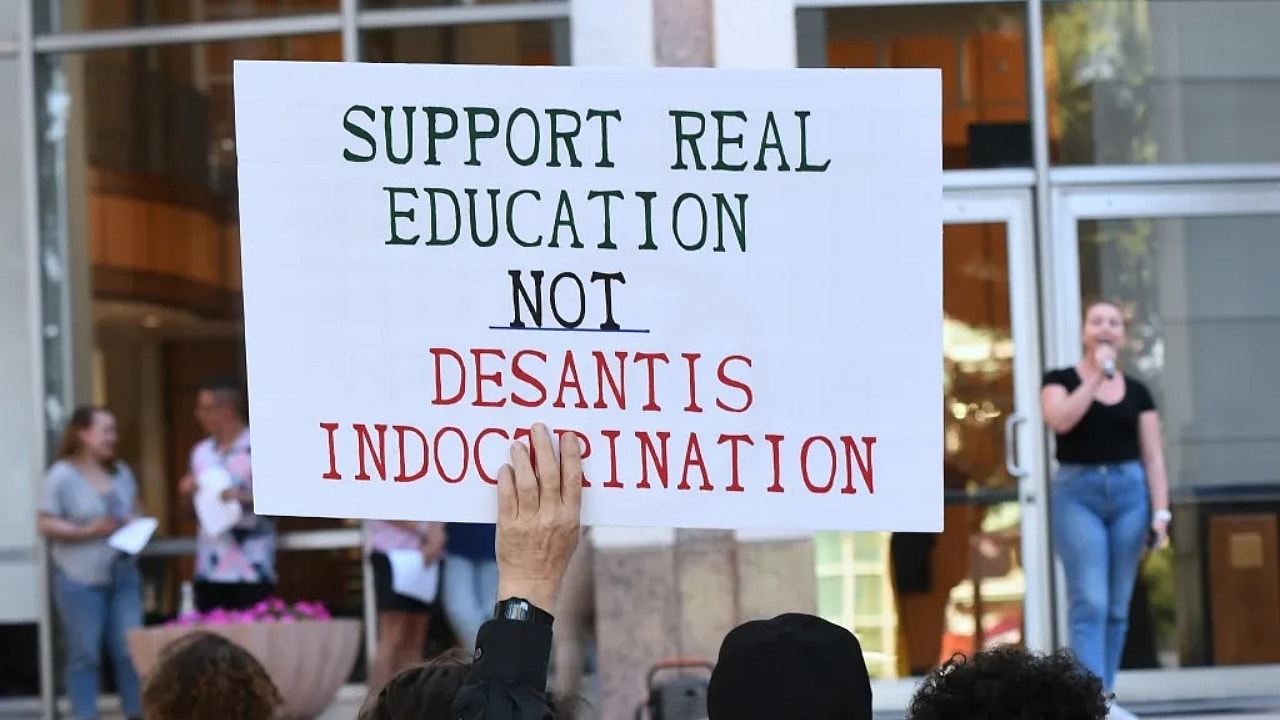 SUPPORT REAL
EDUCATION
NOT
DESANTIS
INDOCTRINATION